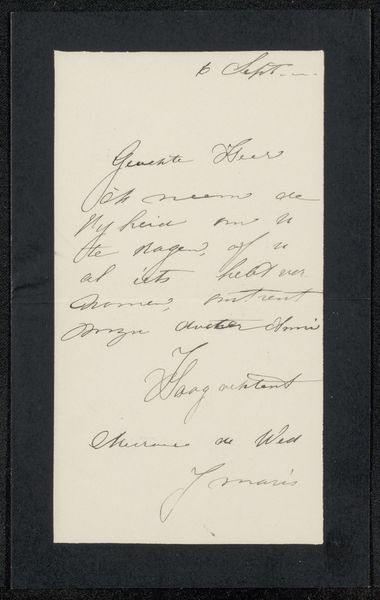 6 Sept.
Geachte Heer
ik neem de
vryheid om u
te vragen, of u
al iets hebt ver
nomen, omtrent
myn dochter Anni
Hoog achtend
Mevrouw de Wed
J maris